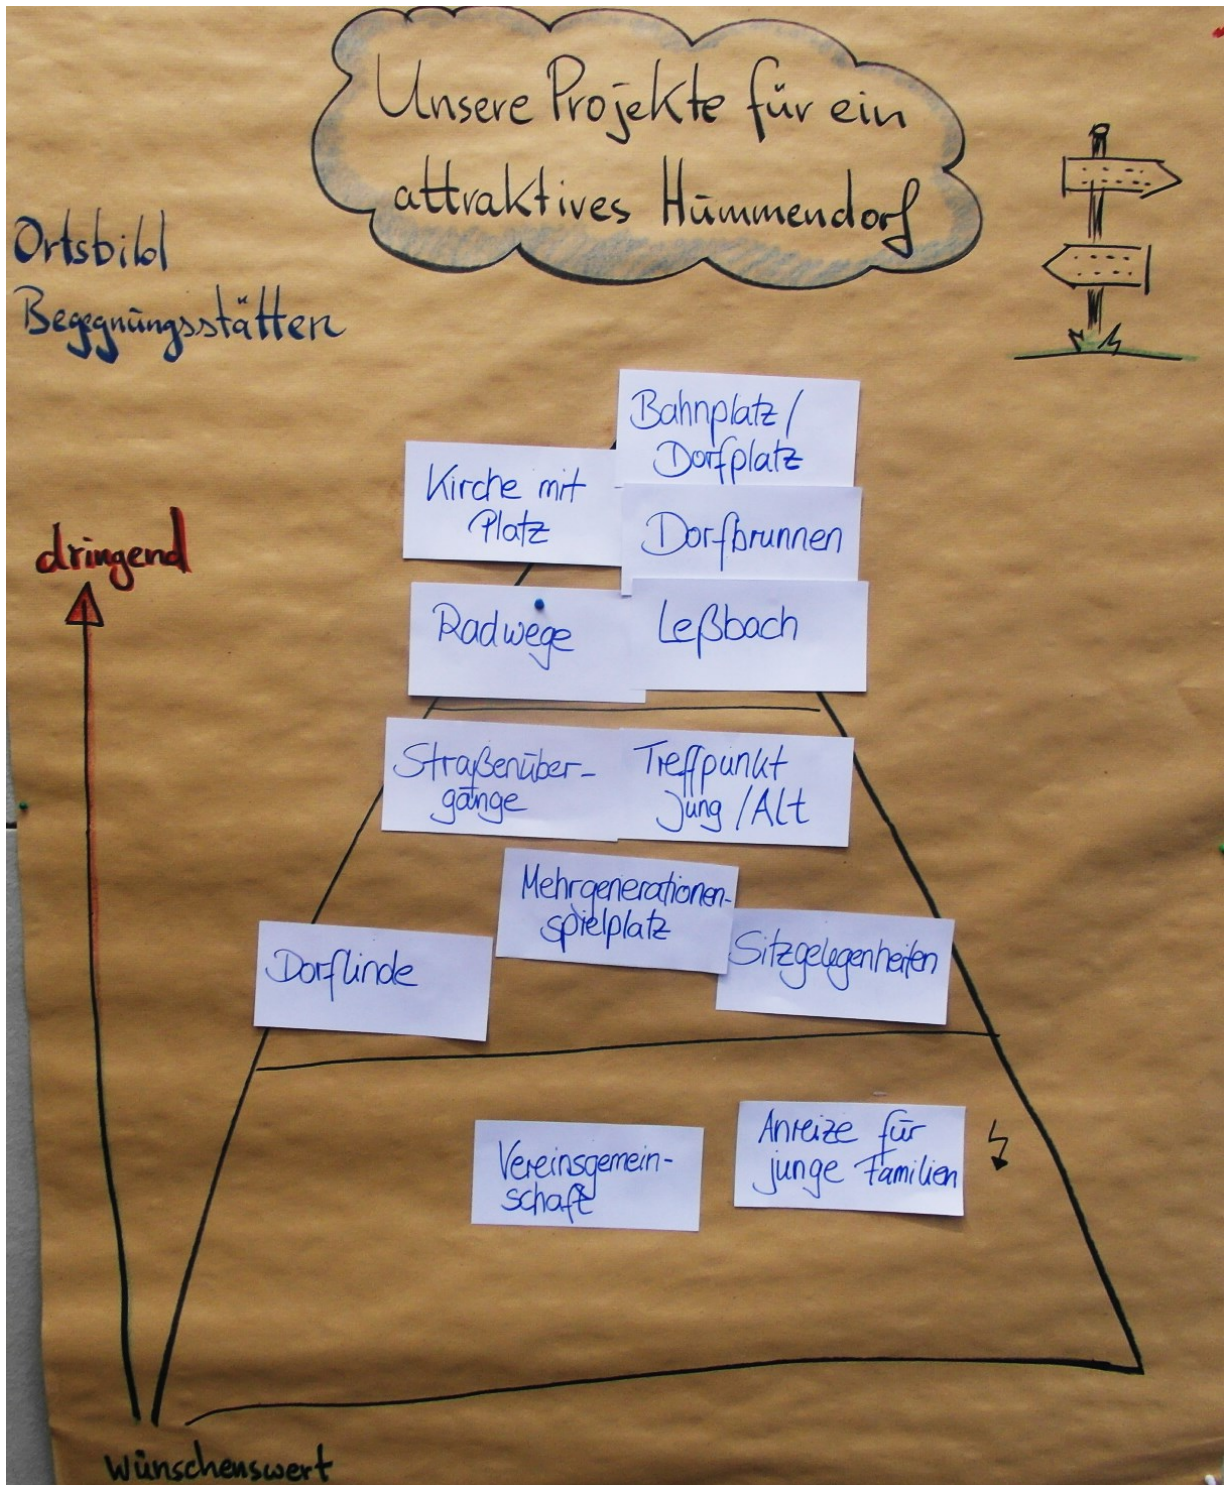 Unsere Projekte für ein
attraktives Hummendorf
Ortsbild
Begegnungsstätten
Bahnplatz /
Dorfplatz
Kirche mit
Platz
Dorfbrunnen
dringend
Radwege
Leßbach
Straßenüber-
gänge
Treffpunkt
Jung / Alt
Mehrgenerationen-
spielplatz
Dorflinde
Sitzgelegenheiten
Vereinsgemein-
schaft
Anreize für
junge Familien
wünschenswert